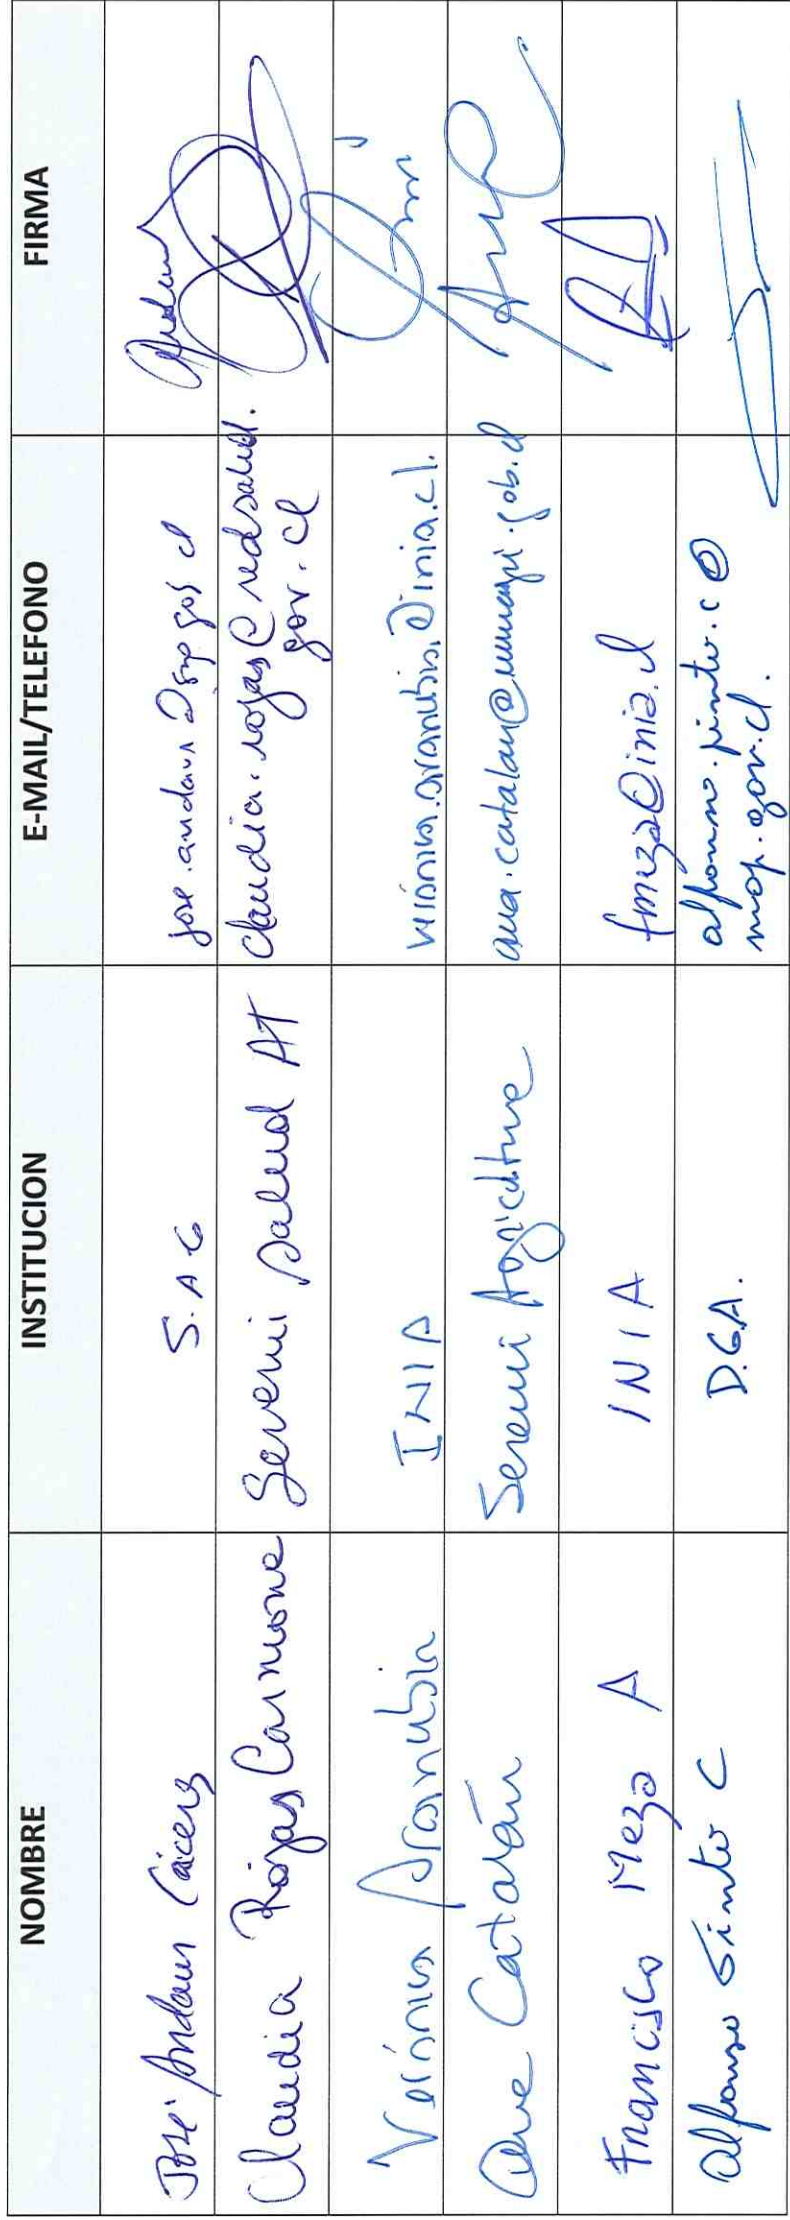 NOMBRE INSTITUCION E-MAIL/TELEFONO FIRMA
José Andaur Cáceres S.A.G jose.andaur @ gob cl
Claudia Rojas Carmona Seremi Salud AT claudia.rojas@redsalud.
gov.cl
Verónica Arancibia INIA veronica.arancibia@inia.cl.
Ana Catalán Seremi Agricultura ana.catalan@minagri.gob.cl
Francisco Meza A INIA fmeza@inia.cl
Alfonso Pinto C D.G.A. alfonso.pinto.c@
mop.gov.cl.